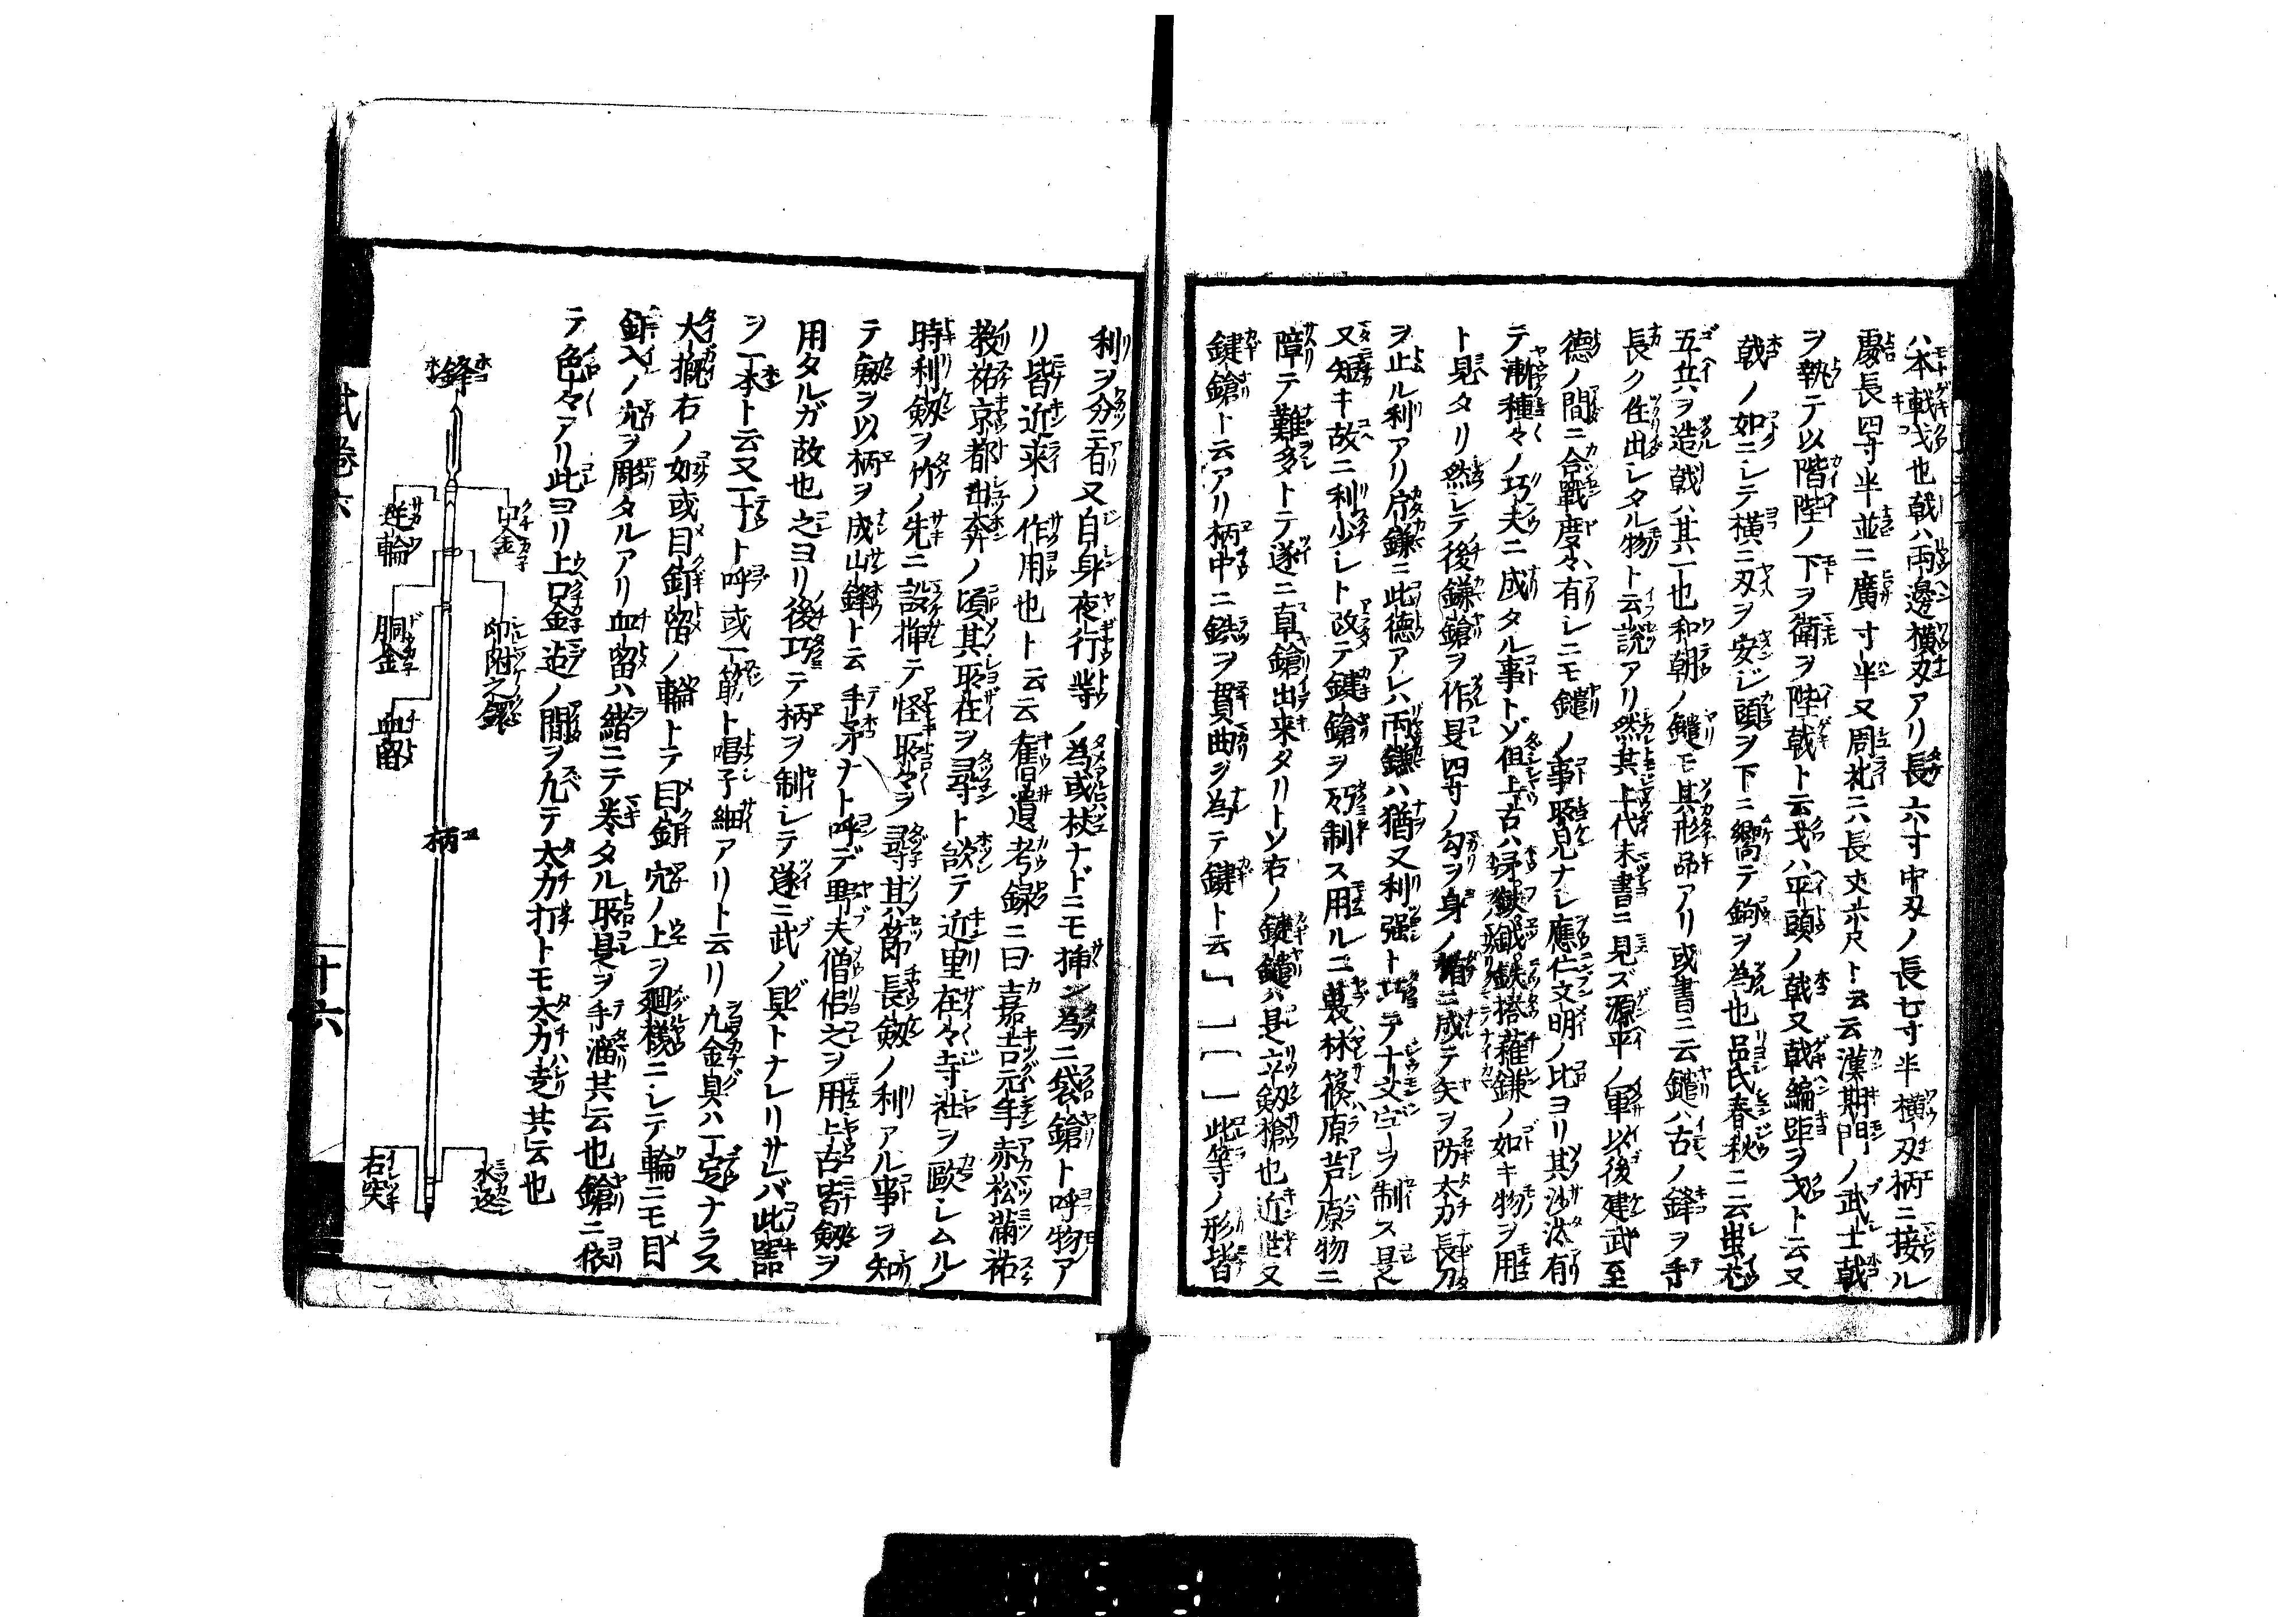 ハ本戟戈也戟ハ両邊横刃アリ長六寸中刃ノ長七寸半横刃柄ニ接ル
處長四寸半並ニ廣寸半又周礼ニハ長丈六尺ト云云漢期門ノ武士戟
ヲ執テ以階陛ノ下ヲ衛ヲ陛戟ト云戈ハ平頭ノ戟又戟編距ヲ戈ト云又
戟ノ如ニシテ横ニ刃ヲ安ジ頭ヲ下ニ嚮テ鉤ヲ為也呂氏春秋ニ云蚩尤
五兵ヲ造戟ハ其一也和朝ノ鑓モ其形品アリ或書ニ云鑓ハ古ノ鋒ヲ手
長ク仕出シタル物ト云説アリ然其上代未書ニ見ズ源平ノ軍以後建武至
德ノ間ニ合戰度々有シニモ鑓ノ事所見ナシ應仁文明ノ比ヨリ其沙汰有
テ漸種々ノ巧夫ニ成タル事トゾ但上古ハ
鎌ノ如キ物ヲ用
ト見タリ然シテ後鎌鎗ヲ作是四寸ノ勾ヲ身ノ楯ニ成テ矢ヲ防太刀長刀
ヲ止ル利アリ片鎌ニ此德アレハ両鎌ハ猶又利强ト巧テ十文字ヲ制ス是
又短キ故ニ利少シト改テ鍵鎗ヲ巧制ス用ルニ藪林篠原芦原物ニ
障テ難多トテ遂ニ直鎗出来タリトソ右ノ鍵鑓ハ是立剱槍也近世又
鍵鎗ト云アリ柄中ニ鉄ヲ貫曲ヲ為テ鍵ト云
此等ノ形皆
利ヲ分ニ有又自身夜行等ノ為或杖ナドニモ挿ン為ニ袋鎗ト呼物ア
リ皆近来ノ作用也ト云云舊遺考録ニ曰嘉吉元年赤松滿祐
教祐京都出奔ノ頃其所在ヲ尋ント欲テ近里在々寺社ヲ歐シムルノ
時利劔ヲ竹ノ先ニ設挿テ怪所々ヲ尋其節長劔ノ利アル事ヲ知
テ劔ヲ以柄ヲ成山鋒ト云手矛ナト呼デ野夫僧侶之ヲ用上古皆劔ヲ
用タルガ故也之ヨリ後巧テ柄ヲ制シテ遂ニ武ノ具トナレリサレバ此器
ヲ一本ト云又一丁ト呼或一筋ト唱子細アリト云リ凡金具ハ一定ナラス
大概右ノ如或目釘陷ノ輪トテ目釘穴ノ上ヲ廻樣ニシテ輪ニモ目
釘入ノ穴ヲ彫タルアリ血留ハ緒ニテ巻タル所是ヲ手溜共云也鎗ニ依
テ色々アリ此ヨリ上口金迄ノ間ヲ凡テ太刀打トモ太刀走共云也
鋒
口金
逆輪
印附之鐶
胴金
血留
柄
水返
石突
武巻六
十六